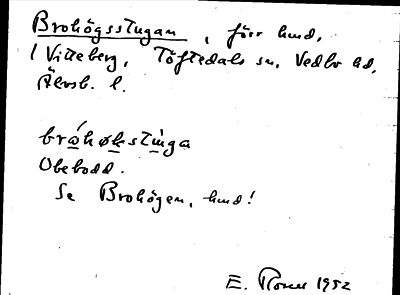 Brohögsstugan, förr hmd,
i Vitteberg, Töftedals sn, Vedbo hd,
Älvsb. l.
bro̲´hø̲k̲stu̲ga
Obebodd.
Se Brohögen, hmd!
E. 1952